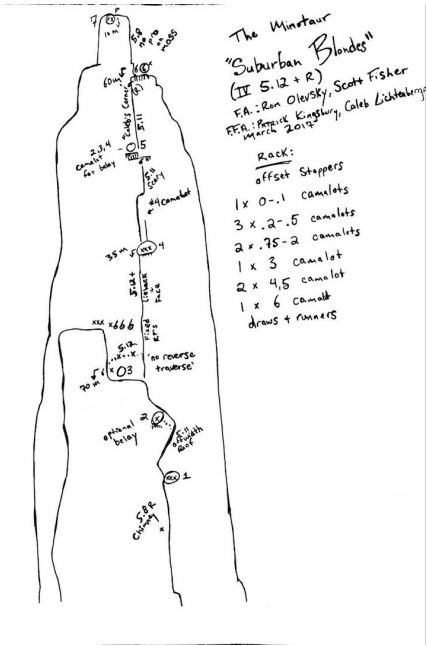 The Minotaur
"Suburban Blondes"
(IV 5.12 + R)
F.A.: Ron Olevsky, Scott Fisher
F.F.A.: Patrick Kingsbury, Caleb Lichtenberger
March 2017
Rack:
offset Stoppers
1 x 0-.1 camalots
3 x .2-.5 camalots
2 x .75-2 camalots
1 x 3 camalot
2 x 4,5 camalot
1 x 6 camalot
draws + runners
7
xx
10m
5.8
no pro
on
moss
60m
6
x
(R)
"Caleb's Corner"
5.11
2,3,4
camalot
for belay
5
5.11
Scary
#4 camalot
35m
5
xxx
4
5.12+
Lieback
+
Face
Fixed
RP's
xxx x666
5.12
x..x.
'no reverse
traverse'
70m
x
3
optional
belay
2
x
5.11
offwidth
Roof
xxx
1
5.8R
Chimney
x